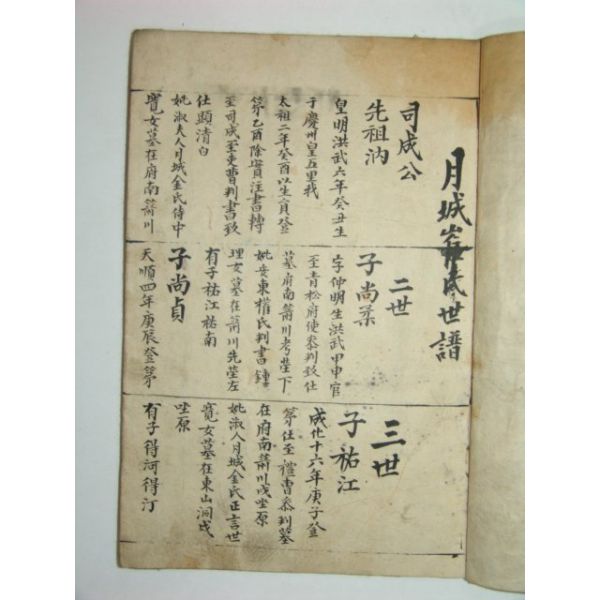 月城崔氏世譜
司成公
先祖汭
皇明洪武六年癸丑生
于慶州皇五里我
太祖二年癸酉以生員登
第乙酉除實注書轉
至司成至吏曹判書致
仕顯清白
妣淑夫人月城金氏侍中
寬女墓在府南蕭川
二世
子尚柔
字仲明生洪武甲申官
至青松府使叅判致仕
墓府南蕭川考塋下
妣安東權氏判書鍾
理女墓在蕭川先塋左
有子祐江祐南
子尚貞
天順四年庚辰登第
三世
子祐江
成化十六年庚子登
第仕至禮曹叅判墓
在府南蕭川戌坐原
妣淑人月城金氏正言世
寬女墓在東山洞戌
坐原
有子得河得汀